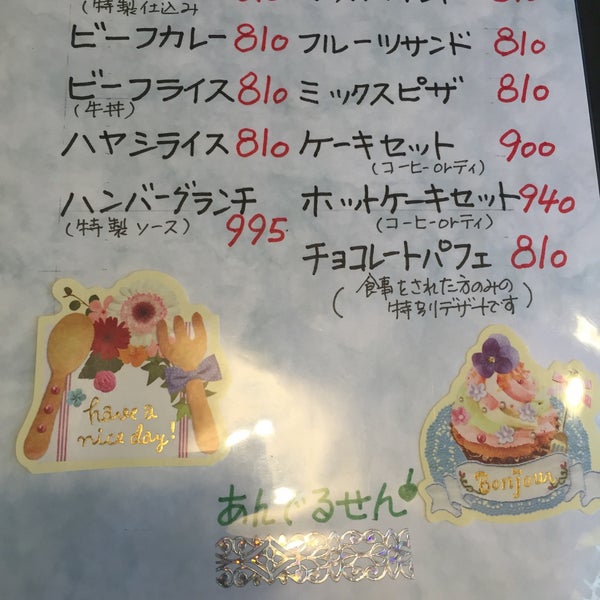 (特製仕込み
ビーフカレー 810
ビーフライス 810
(牛丼)
ハヤシライス 810
ハンバーグランチ
(特製ソース) 995
フルーツサンド 810
ミックスピザ 810
ケーキセット 900
(コーヒーorティ)
ホットケーキセット 940
(コーヒーorティ)
チョコレートパフェ 810
(食事をされた方のみの
特別デザートです)
have a
nice day!
Bonjour
あんでるせん